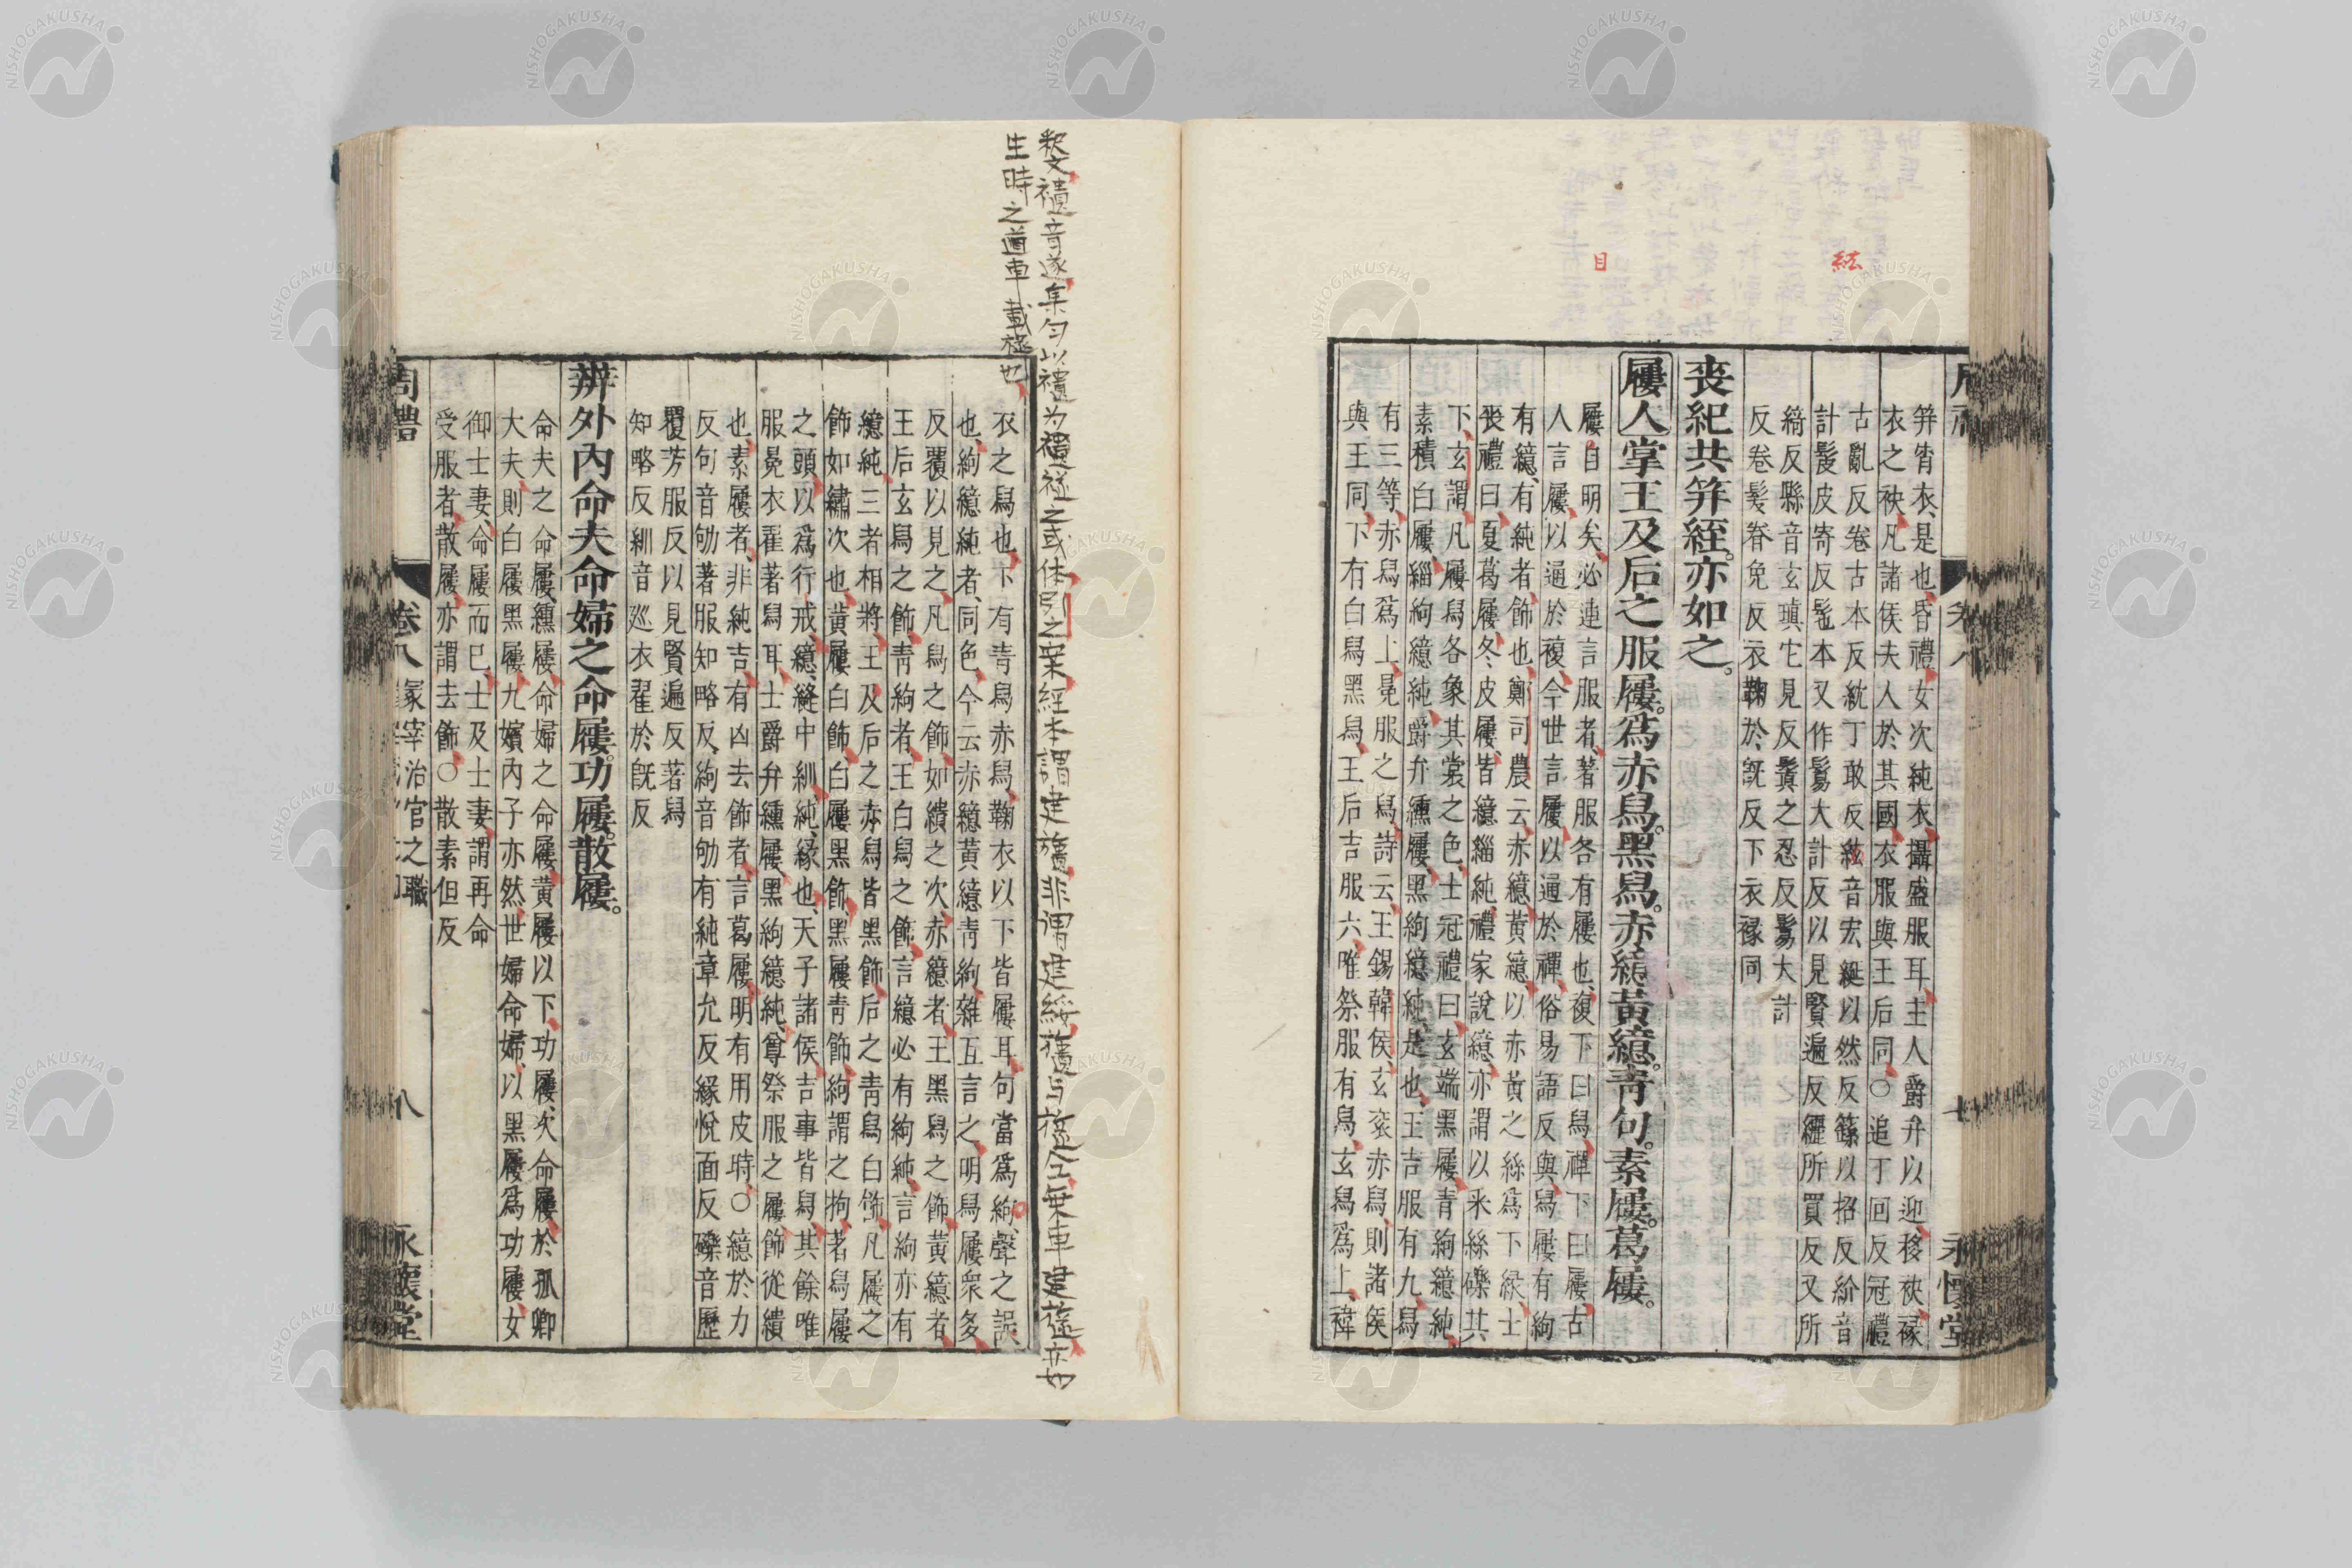 絃
目
笄宵衣是也昏禮女次純衣攝盛服耳主人爵弁以迎移袂褖
衣之袂凡諸侯夫人於其國衣服與王后同○追丁回反冠禮
古亂反卷古本反紞丁敢反紘音宏綖以然反繇以招反紒音
計髲皮寄反髢本又作鬄大計反以見賢遍反纚所買反又所
綺反縣音玄瑱它見反鬒之忍反鬄大計
反卷髮眷免反衣鞠於旣反下衣褖同
喪紀共笄絰。亦如之。
屨人掌王及后之服屨。爲赤舄。黑舄。赤繶黃繶。靑句。素屨。葛屨。
屨自明矣必連言服者著服各有屨也複下曰舄禪下曰屨古
人言屨以通於複今世言屨以通於禪俗易語反與舄屨有絇
有繶有純者飾也鄭司農云赤繶黃繶以赤黃之絲爲下緣士
喪禮曰夏葛屨冬皮屨皆繶緇純禮家說繶亦謂以采絲礫其
下玄謂凡屨舄各象其裳之色士冠禮曰玄端黑屨青絇繶純
素積白屨緇絇繶純爵弁纁屨黑絇繶純是也王吉服有九舄
有三等赤舄爲上冕服之舄詩云王錫韓侯玄袞赤舄則諸侯
與王同下有白舄黑舄王后吉服六唯祭服有舄玄舄爲上褘
永懷堂
釈文禭音遂集匀以禭为
生時之道車載禭也
衣之舄也下有靑舄赤舄鞠衣以下皆屨耳句當爲絇聲之誤
也絇繶純者同色今云赤繶黃繶靑絇雜互言之明舄屨衆多
反覆以見之凡舄之飾如繢之次赤繶者王黑舄之飾黃繶者
王后玄舄之飾靑絇者王白舄之飾言繶必有絇純言絇亦有
繶純三者相將王及后之赤舄皆黑飾后之靑舄白飾凡屨之
飾如繡次也黃屨白飾白屨黑飾黑屨靑飾絇謂之拘著舄屨
之頭以爲行戒繶縫中紃純緣也天子諸侯吉事皆舄其餘唯
服冕衣翟著舄耳士爵弁纁屨黑絇繶純尊祭服之屨飾從繢
也素屨者非純吉有凶去飾者言葛屨明有用皮時○繶於力
反句音劬著服知略反絇音劬有純章允反緣悅面反礫音歷
覆芳服反以見賢遍反著舄
知略反紃音巡衣翟於旣反
辨外內命夫命婦之命屨。功屨。散屨。
命夫之命屨纁屨命婦之命屨黃屨以下功屨次命屨於孤卿
大夫則白屨黑屨九嬪內子亦然世婦命婦以黑屨爲功屨女
御士妻命屨而已士及士妻謂再命
受服者散屨亦謂去飾○散素但反
周禮 卷八 冢宰治官之職 八 永懷堂